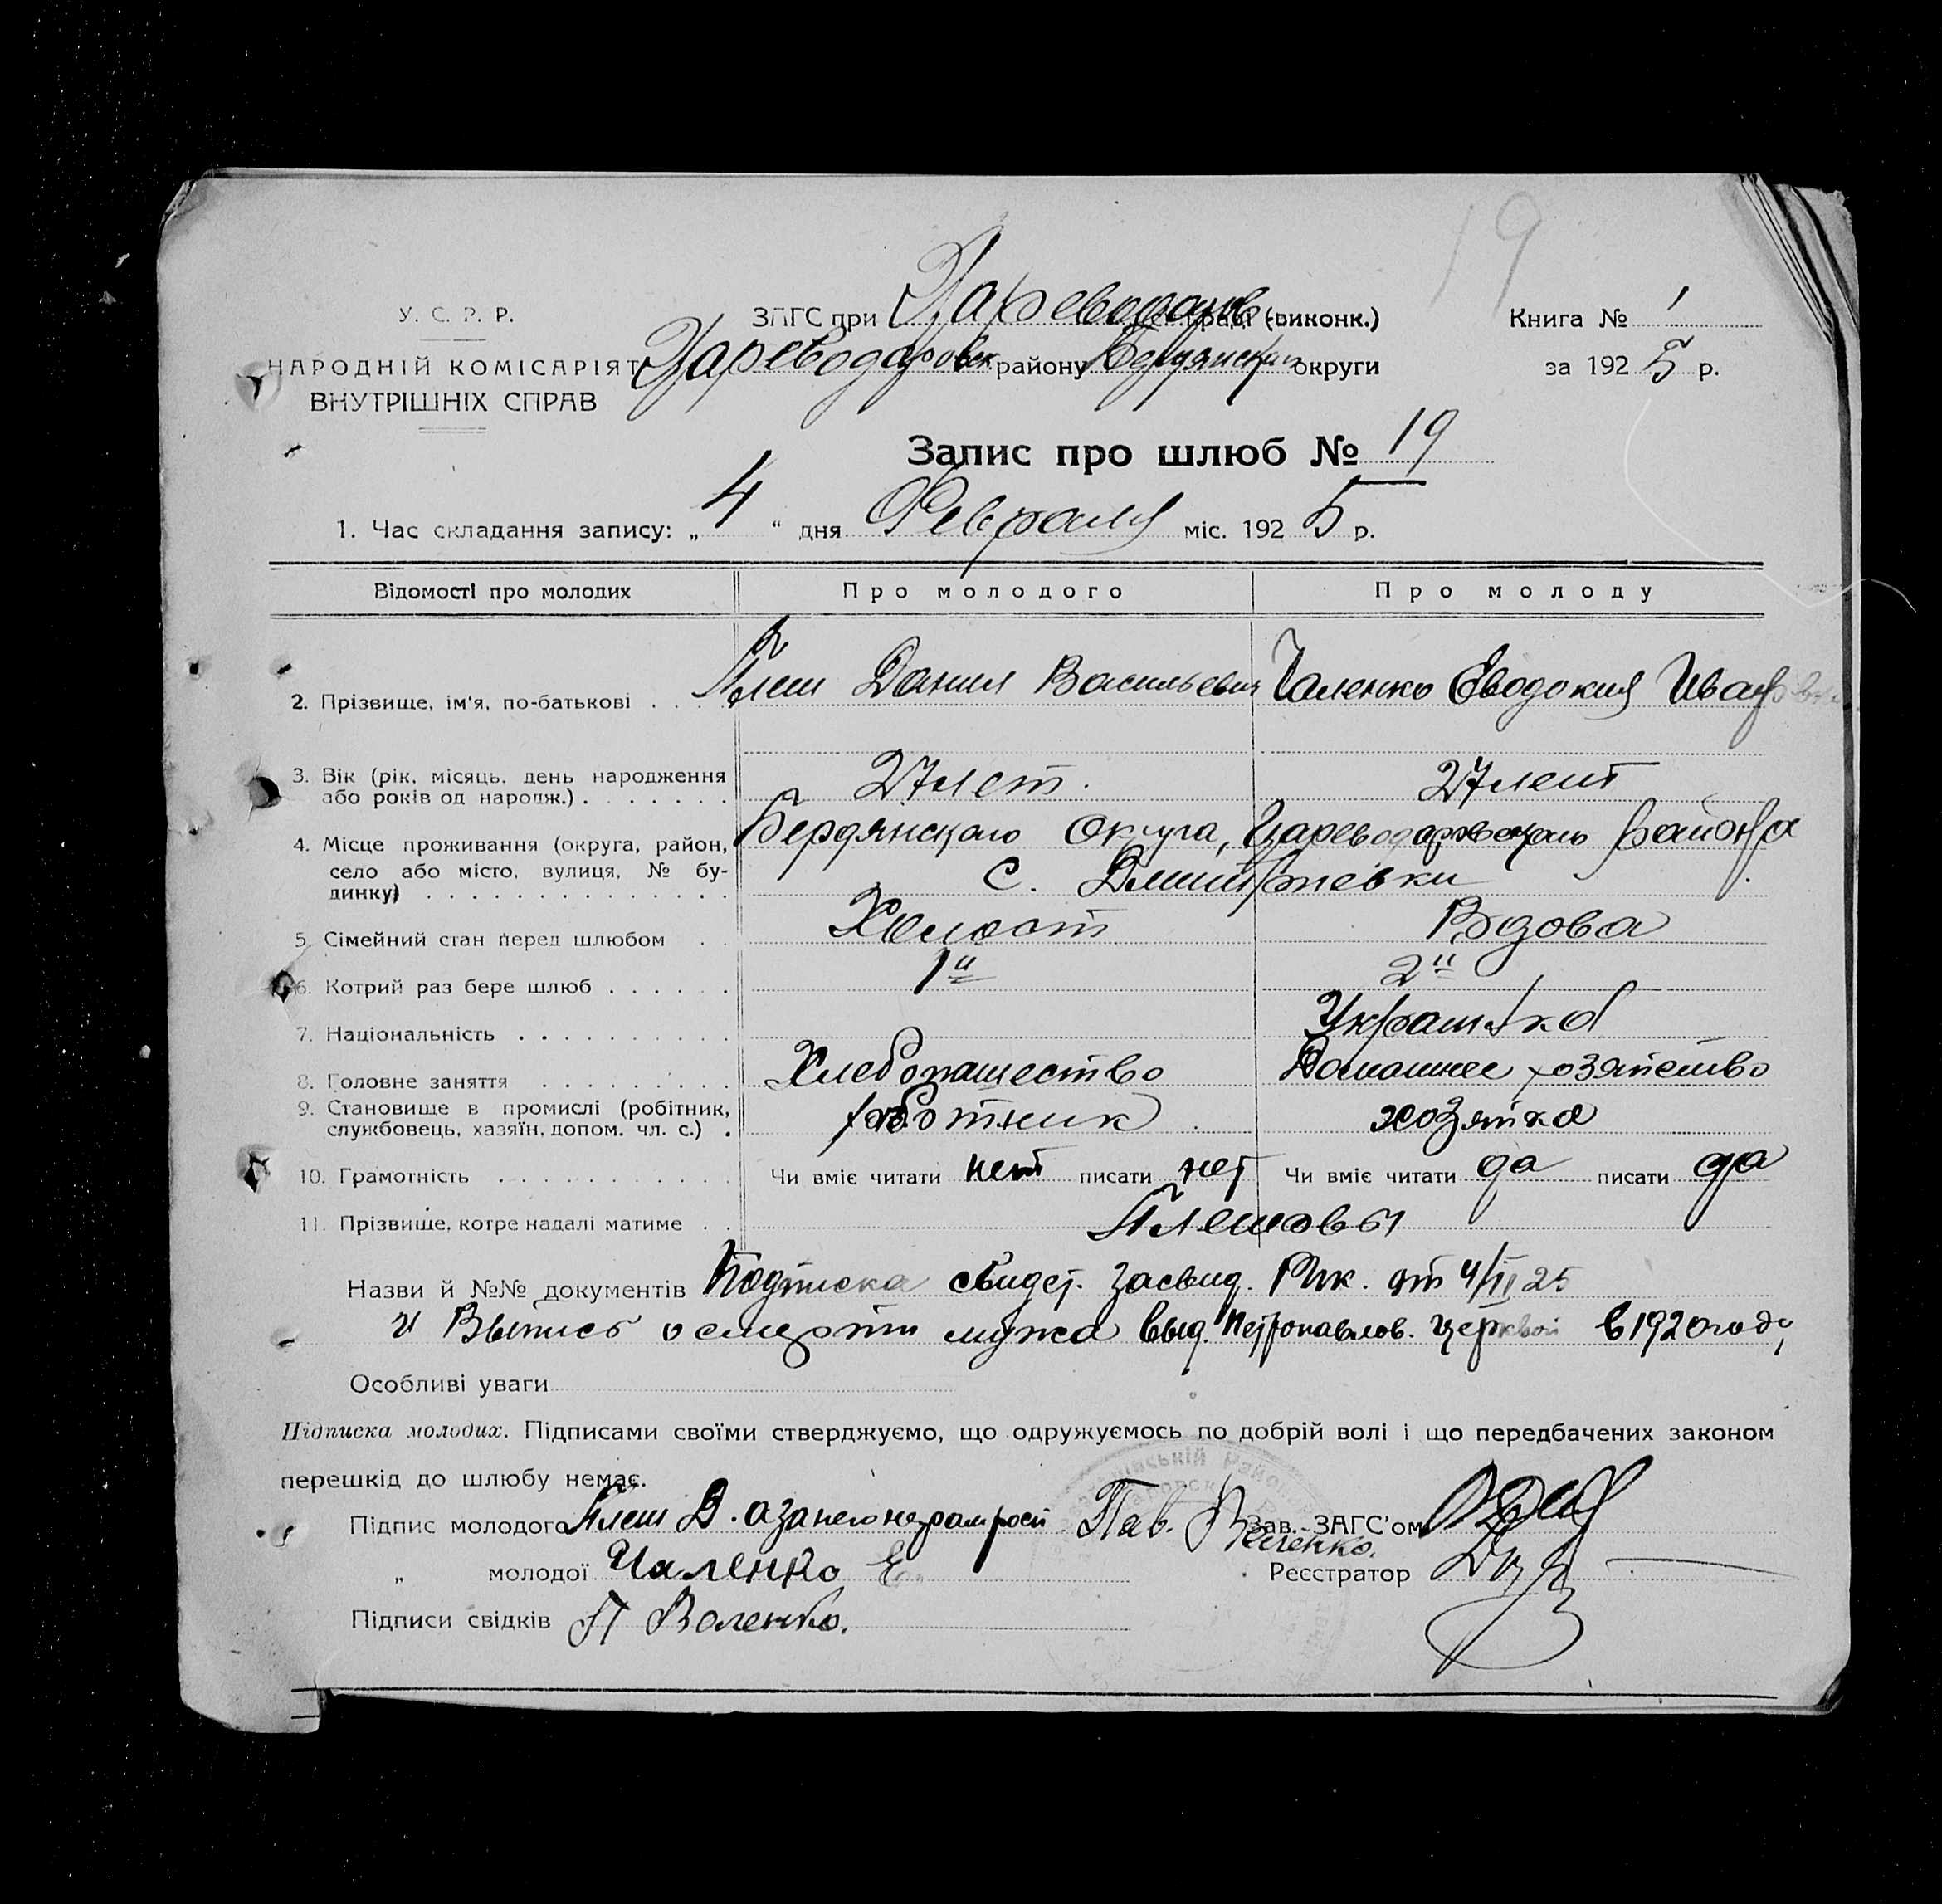 19
У. С. Р. Р.
НАРОДНІЙ КОМІСАРІЯТ
ВНУТРІШНІХ СПРАВ
ЗАГС при Цареводаров (виконк.)
Цареводаровск району Бердянскаго округи
Книга № 1
за 1925 р.
Запис про шлюб № 19
1. Час складання запису: „4“ дня Февраля міс. 1925 р.
Відомості про молодих Про молодого Про молоду
2. Прізвище, ім'я, по-батькові Плеш Данил Васильевич Чаленко Евдокия
3. Вік (рік, місяць, день народження або років од народж.) 27 лет. 27 лет
4. Місце проживання (округа, район, Бердянскаго Округа, Цареводаровскаго района
село або місто, вулиця, № будинку) с. Дмитровки
5. Сімейний стан перед шлюбом Холост Вдова
6. Котрий раз бере шлюб 1й 2й
7. Національність Украинка
8. Головне заняття Хлебопашество Домашнее хозяйство
9. Становище в промислі (робітник, службовець, хазяїн, допом. чл. с.) работник хозяйка
10. Грамотність Чи вміє читати нет писати нет Чи вміє читати да писати да
11. Прізвище, котре надалі матиме Плешовы
Назви й №№ документів Подписка свидет. засвид. РИК. от 4/II 25
и Выпись о смерти мужа выд. Петропавлов. церквой в 1920 году
Особливі уваги
Підписка молодих. Підписами своїми стверджуємо, що одружуємось по добрій волі і що передбачених законом
перешкід до шлюбу немає.
Підпис молодого Плеш Д. а за него неграмотной Пав. Зав. ЗАГС'ом
„ молодої Чаленко Е. Реєстратор
Підписи свідків П Валенко.